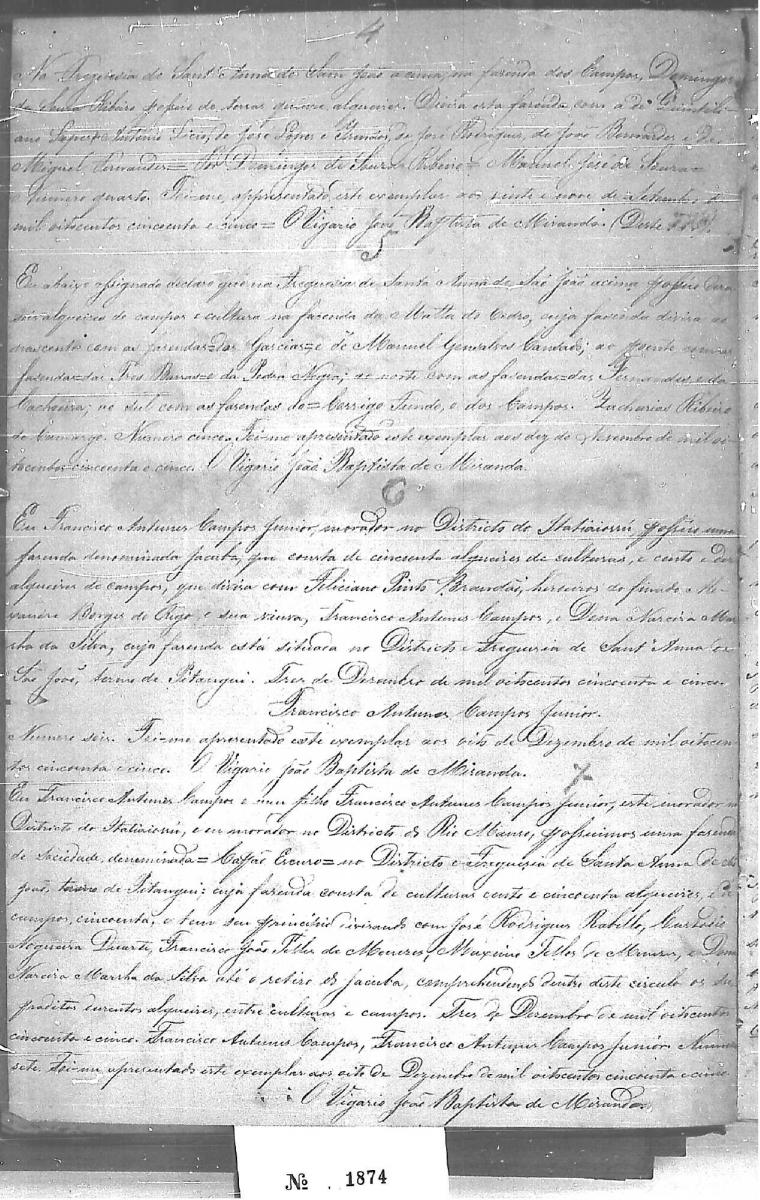 4
Na Freguesia de Sant'Anna de Sam João acima, na fazenda dos Campos, Domingos
de Souza Ribeiro possue de terras quinze alqueires. Divisa esta fazenda com a de Quintili-
ano Lopes, Antonio Licio, de José Lopes e Irmãos, de José Rodrigues, de João Bernardes e de
Miguel Fernandes = Por Domingos de Souza Ribeiro = Manuel José de Souza =
Numero quarto. Foi-me appresentado este exemplar aos vinte e nove de Setembro de
mil oitocentos cincoenta e cinco = O Vigario João Baptista de Miranda. (Deste
5
Eu abaixo assignado declaro que na Freguesia de Santa Anna de São João acima possuo
alqueires de campos e cultura na fazenda da Matta do Cedro, cuja fazenda divisa ao
nascente com as fazendas dos Garcias e de Manuel Gonsalves Candado; ao poente com as
fazendas das Tres Barras e da Pedra Negra; ao norte com as fazendas das Fernandes e da
Cachoeira; ao sul com as fazendas do = Corrigo Fundo, e dos Campos. Zacharias Ribeiro
de Camargo. Numero cinco. Foi-me apresentado este exemplar aos dez de Desembro de mil oi-
tocentos cincoenta e cinco. O Vigario João Baptista de Miranda.
6
Eu Francisco Antunes Campos Junior, morador no Districto do Itatiaiossú, possuo uma
fazenda denominada Jacuba, que consta de cincoenta alqueires de culturas, e cento e dez
alqueires de campos, que divisa com Feliciano Pinto Brandão, herseiros do finado
Borges do Rego, e sua viuva, Francisco Antunes Campos, e Dona Narcisa Mar-
tha da Silva, cuja fazenda está situada no Districto e Freguesia de Sant'Anna de
São João, termo de Pitangui. Tres de Dezembro de mil oitocentos cincoenta e cinco.
Francisco Antunes Campos Junior.
Numero seis. Foi-me apresentado este exemplar aos oito de Dezembro de mil oitocen-
tos cincoenta e cinco. O Vigario João Baptista de Miranda.
7
Eu Francisco Antunes Campos e meu filho Francisco Antunes Campos Junior, este morador no
Districto do Itatiaiossú, e eu morador no Districto do Rio Manso, possuimos uma fazenda
de Sociedade, denominada = Capão Escuro = no Districto e Freguesia de Santa Anna de São
João, termo de Pitangui; cuja fazenda consta de culturas cento e cincoenta alqueires, e de
campos, cincoenta, e tem seu principio divisando com José Rodrigues Rabello, Custodio
Nogueira Duarte, Francisco João Telles de Menezes, Maximo Telles de Menezes, e Dona
Narcisa Martha da Silva até o retiro do Jacuba, comprehendendo dentro deste circulo os su-
praditos duzentos alqueires, entre culturas e campos. Tres de Dezembro de mil oitocentos
cincoenta e cinco. Francisco Antunes Campos, Francisco Antunes Campos Junior. Numero
sete. Foi-me apresentado este exemplar aos oito de Dezembro de mil oitocentos cincoenta e cinco
O Vigario João Baptista de Miranda.
№ 1874